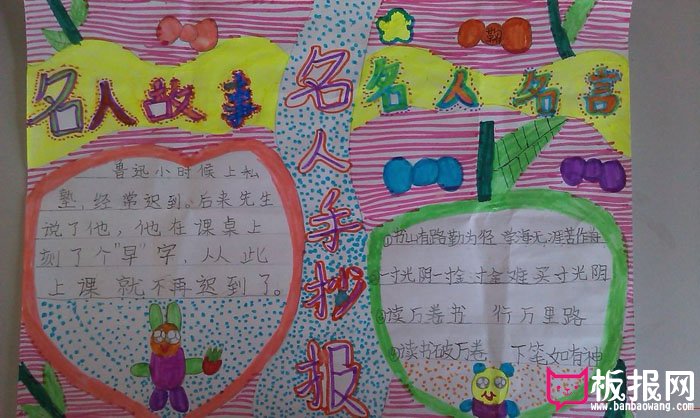 名人故事
鲁迅小时候上私
塾,经常迟到。后来先生
说了他,他在课桌上
刻了个"早"字,从此
上课就不再迟到了。
名人手抄报
名人名言
①书山有路勤为径 学海无涯苦作舟
一寸光阴一寸金 寸金难买寸光阴
③读万卷书 行万里路
④读书破万卷 下笔如有神
板报网
www.banbaowang.com